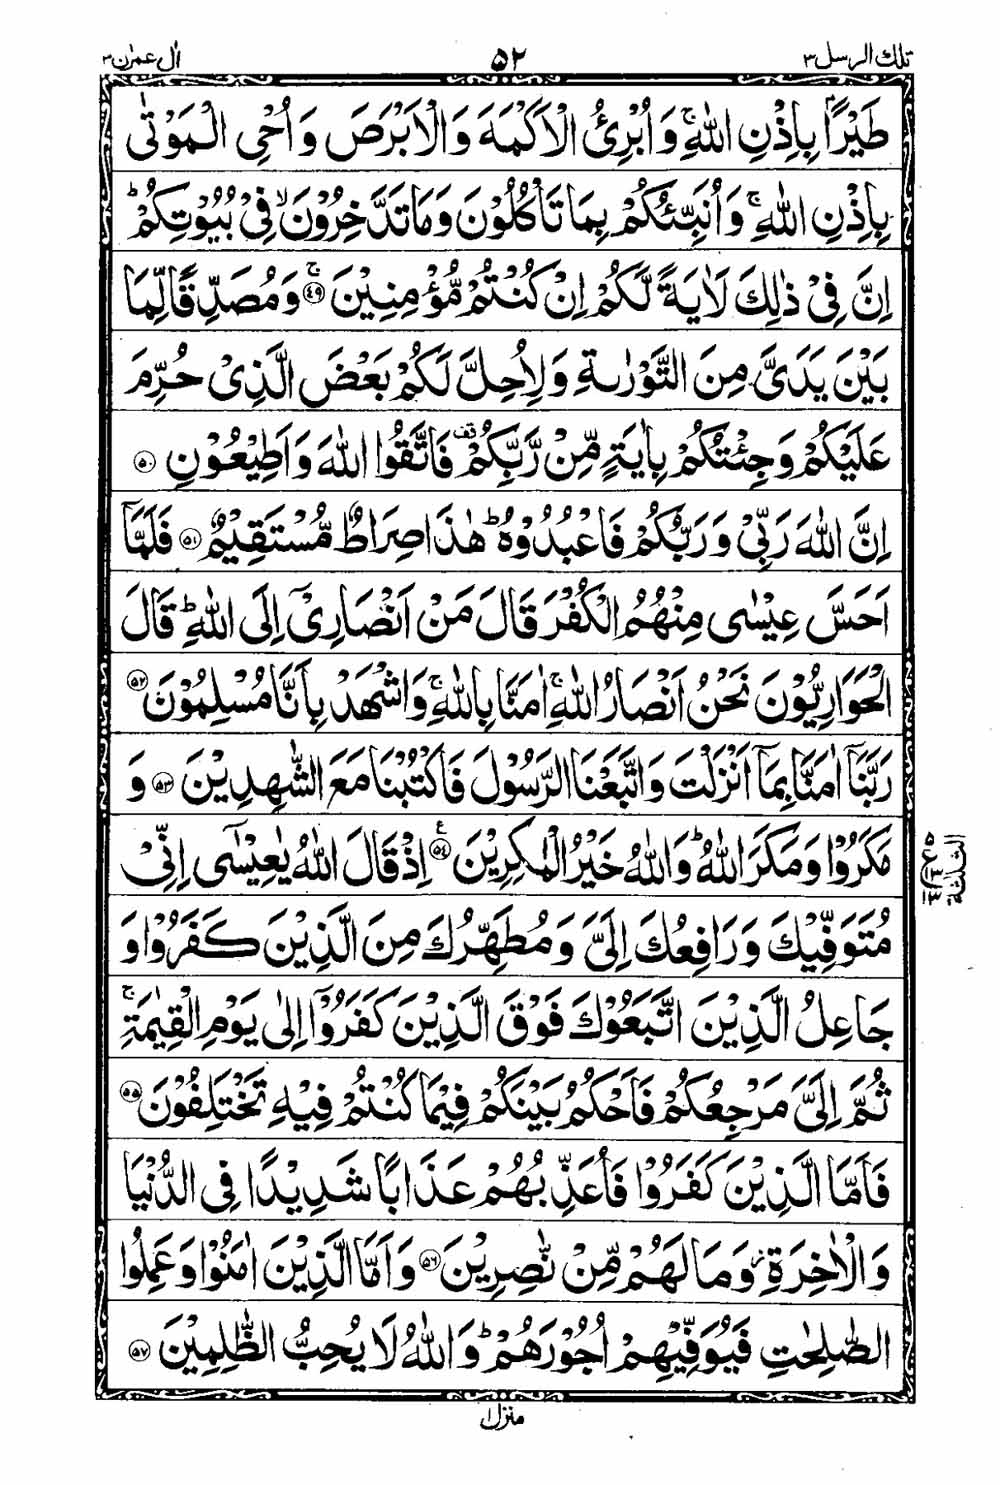 تلك الرسل ٣ ٥٢ اٰل عمرٰن ٣
طَيْرًۢا بِاِذْنِ اللّٰهِ ۚ وَاُبْرِئُ الْاَكْمَهَ وَالْاَبْرَصَ وَاُحْيِ الْمَوْتٰى
بِاِذْنِ اللّٰهِ ۚ وَاُنَبِّئُكُمْ بِمَا تَاْكُلُوْنَ وَمَا تَدَّخِرُوْنَ ۙ فِيْ بُيُوْتِكُمْ ؕ
اِنَّ فِيْ ذٰلِكَ لَاٰيَةً لَّكُمْ اِنْ كُنْتُمْ مُّؤْمِنِيْنَ ۚ ﴿٤٩﴾ وَمُصَدِّقًا لِّمَا
بَيْنَ يَدَيَّ مِنَ التَّوْرٰىةِ وَلِاُحِلَّ لَكُمْ بَعْضَ الَّذِيْ حُرِّمَ
عَلَيْكُمْ وَجِئْتُكُمْ بِاٰيَةٍ مِّنْ رَّبِّكُمْ قف فَاتَّقُوا اللّٰهَ وَاَطِيْعُوْنِ ﴿٥٠﴾
اِنَّ اللّٰهَ رَبِّيْ وَرَبُّكُمْ فَاعْبُدُوْهُ ؕ هٰذَا صِرَاطٌ مُّسْتَقِيْمٌ ﴿٥١﴾ فَلَمَّاۤ
اَحَسَّ عِيْسٰى مِنْهُمُ الْكُفْرَ قَالَ مَنْ اَنْصَارِيْۤ اِلَى اللّٰهِ ؕ قَالَ
الْحَوَارِيُّوْنَ نَحْنُ اَنْصَارُ اللّٰهِ ۚ اٰمَنَّا بِاللّٰهِ ۚ وَاشْهَدْ بِاَنَّا مُسْلِمُوْنَ ﴿٥٢﴾
رَبَّنَاۤ اٰمَنَّا بِمَاۤ اَنْزَلْتَ وَاتَّبَعْنَا الرَّسُوْلَ فَاكْتُبْنَا مَعَ الشّٰهِدِيْنَ ﴿٥٣﴾ وَ
مَكَرُوْا وَمَكَرَ اللّٰهُ ؕ وَاللّٰهُ خَيْرُ الْمٰكِرِيْنَ ﴿٥٤﴾ ع اِذْ قَالَ اللّٰهُ يٰعِيْسٰۤى اِنِّيْ
مُتَوَفِّيْكَ وَرَافِعُكَ اِلَيَّ وَمُطَهِّرُكَ مِنَ الَّذِيْنَ كَفَرُوْا وَ
جَاعِلُ الَّذِيْنَ اتَّبَعُوْكَ فَوْقَ الَّذِيْنَ كَفَرُوْۤا اِلٰى يَوْمِ الْقِيٰمَةِ ۚ
ثُمَّ اِلَيَّ مَرْجِعُكُمْ فَاَحْكُمُ بَيْنَكُمْ فِيْمَا كُنْتُمْ فِيْهِ تَخْتَلِفُوْنَ ﴿٥٥﴾
فَاَمَّا الَّذِيْنَ كَفَرُوْا فَاُعَذِّبُهُمْ عَذَابًا شَدِيْدًا فِي الدُّنْيَا
وَالْاٰخِرَةِ ز وَمَا لَهُمْ مِّنْ نّٰصِرِيْنَ ﴿٥٦﴾ وَاَمَّا الَّذِيْنَ اٰمَنُوْا وَعَمِلُوا
الصّٰلِحٰتِ فَيُوَفِّيْهِمْ اُجُوْرَهُمْ ؕ وَاللّٰهُ لَا يُحِبُّ الظّٰلِمِيْنَ ﴿٥٧﴾
منزل ١
الثلثة